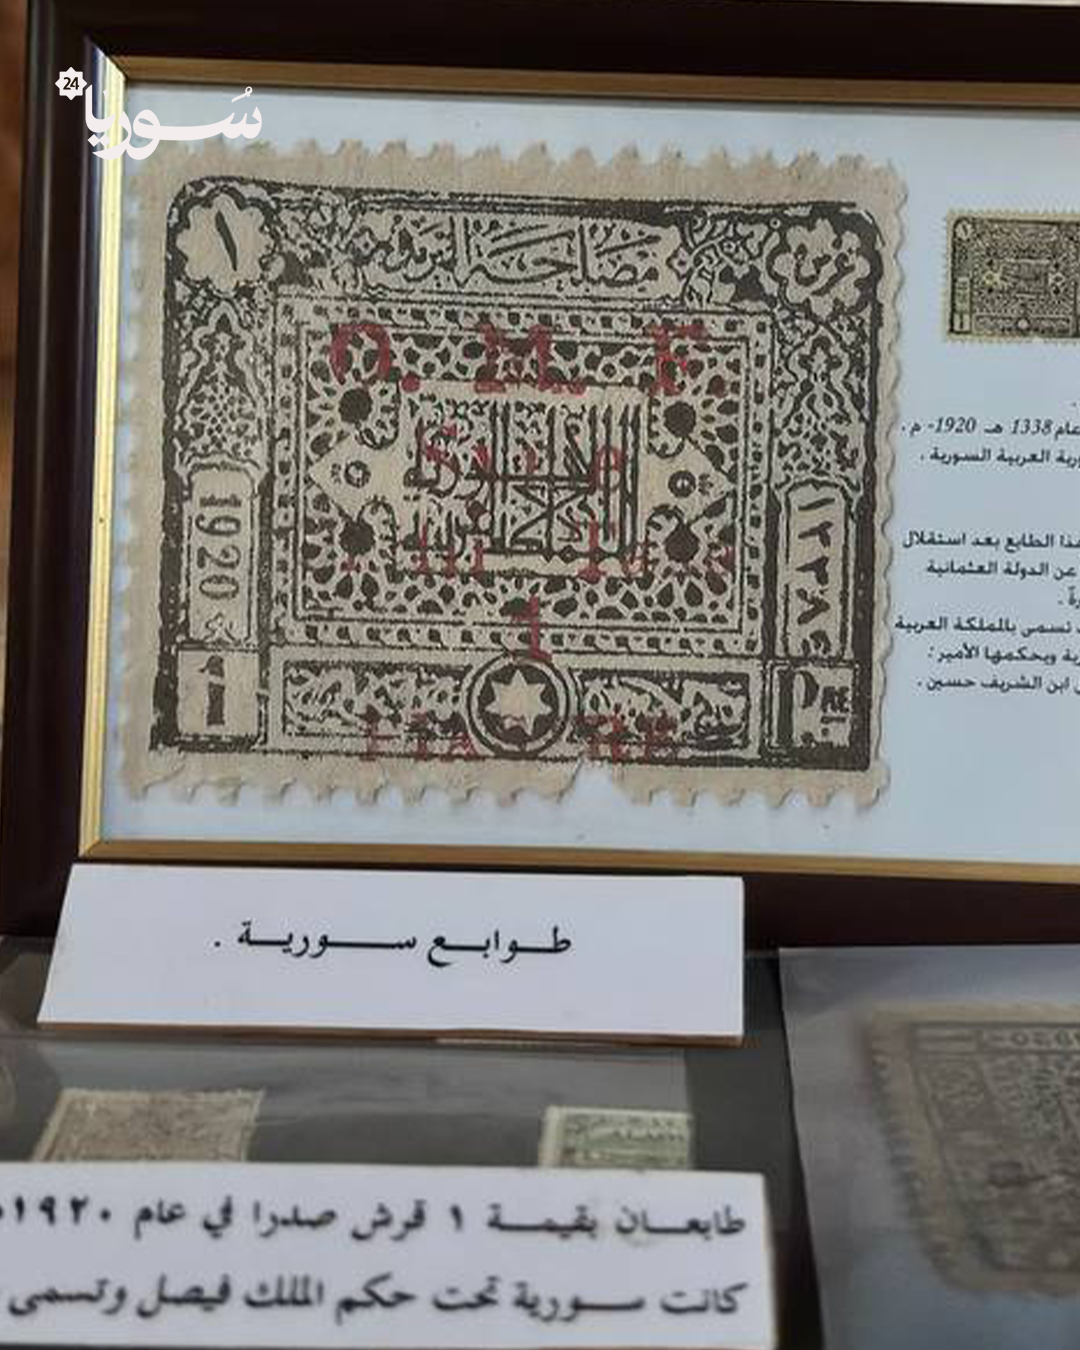 سُوريَا
24
١
قرش
مصلحة البريد
O. M. F.
Syrie
1
1920
١٣٣٨
1
P.RE
عام 1338 هـ 1920- م .
العربية السورية .
هذا الطابع بعد استقلال
عن الدولة العثمانية
تسمى بالمملكة العربية
ويحكمها الأمير :
ابن الشريف حسين .
طوابع سورية .
طابعان بقيمة ١ قرش صدرا في عام ١٩٢٠
كانت سورية تحت حكم الملك فيصل وتسمى